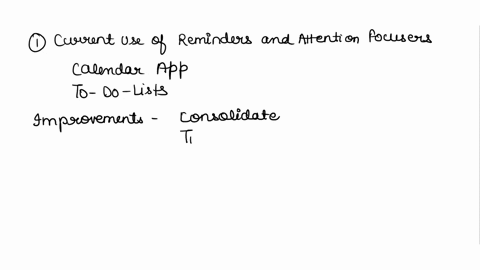 ① Current Use of Reminders and Attention Focusers
Calendar App
To-Do-Lists
Improvements - Consolidate